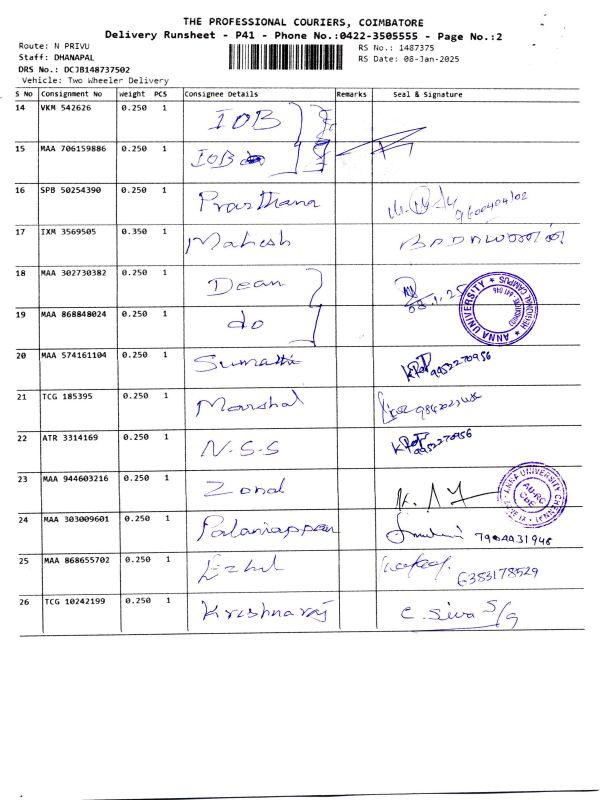 THE PROFESSIONAL COURIERS, COIMBATORE
Delivery Runsheet - P41 - Phone No.:0422-3505555 - Page No.:2
Route: N PRIVU
RS No.: 1487375
Staff: DHANAPAL
RS Date: 08-Jan-2025
DRS No.: DCJB148737502
Vehicle: Two Wheeler Delivery
S No Consignment No Weight PCS Consignee Details Remarks Seal & Signature
14 VKM 542626 0.250 1 IOB
15 MAA 706159886 0.250 1 IOB
16 SPB 50254390 0.250 1 Prasthana
17 IXM 3569505 0.350 1 Mahesh
18 MAA 302730382 0.250 1 Dean
ANNA UNIVERSITY
19 MAA 868848024 0.250 1 do
20 MAA 574161104 0.250 1 Sumathi 9952270956
21 TCG 185395 0.250 1 Marshal
22 ATR 3314169 0.250 1 N.S.S 9952270956
23 MAA 944603216 0.250 1 Zonal
ANNA UNIVERSITY CHENNAI
24 MAA 303009601 0.250 1 Palaniappan
25 MAA 868655702 0.250 1 Ezhil 6383178529
26 TCG 10242199 0.250 1 Krishnaraj C. Siva S/G